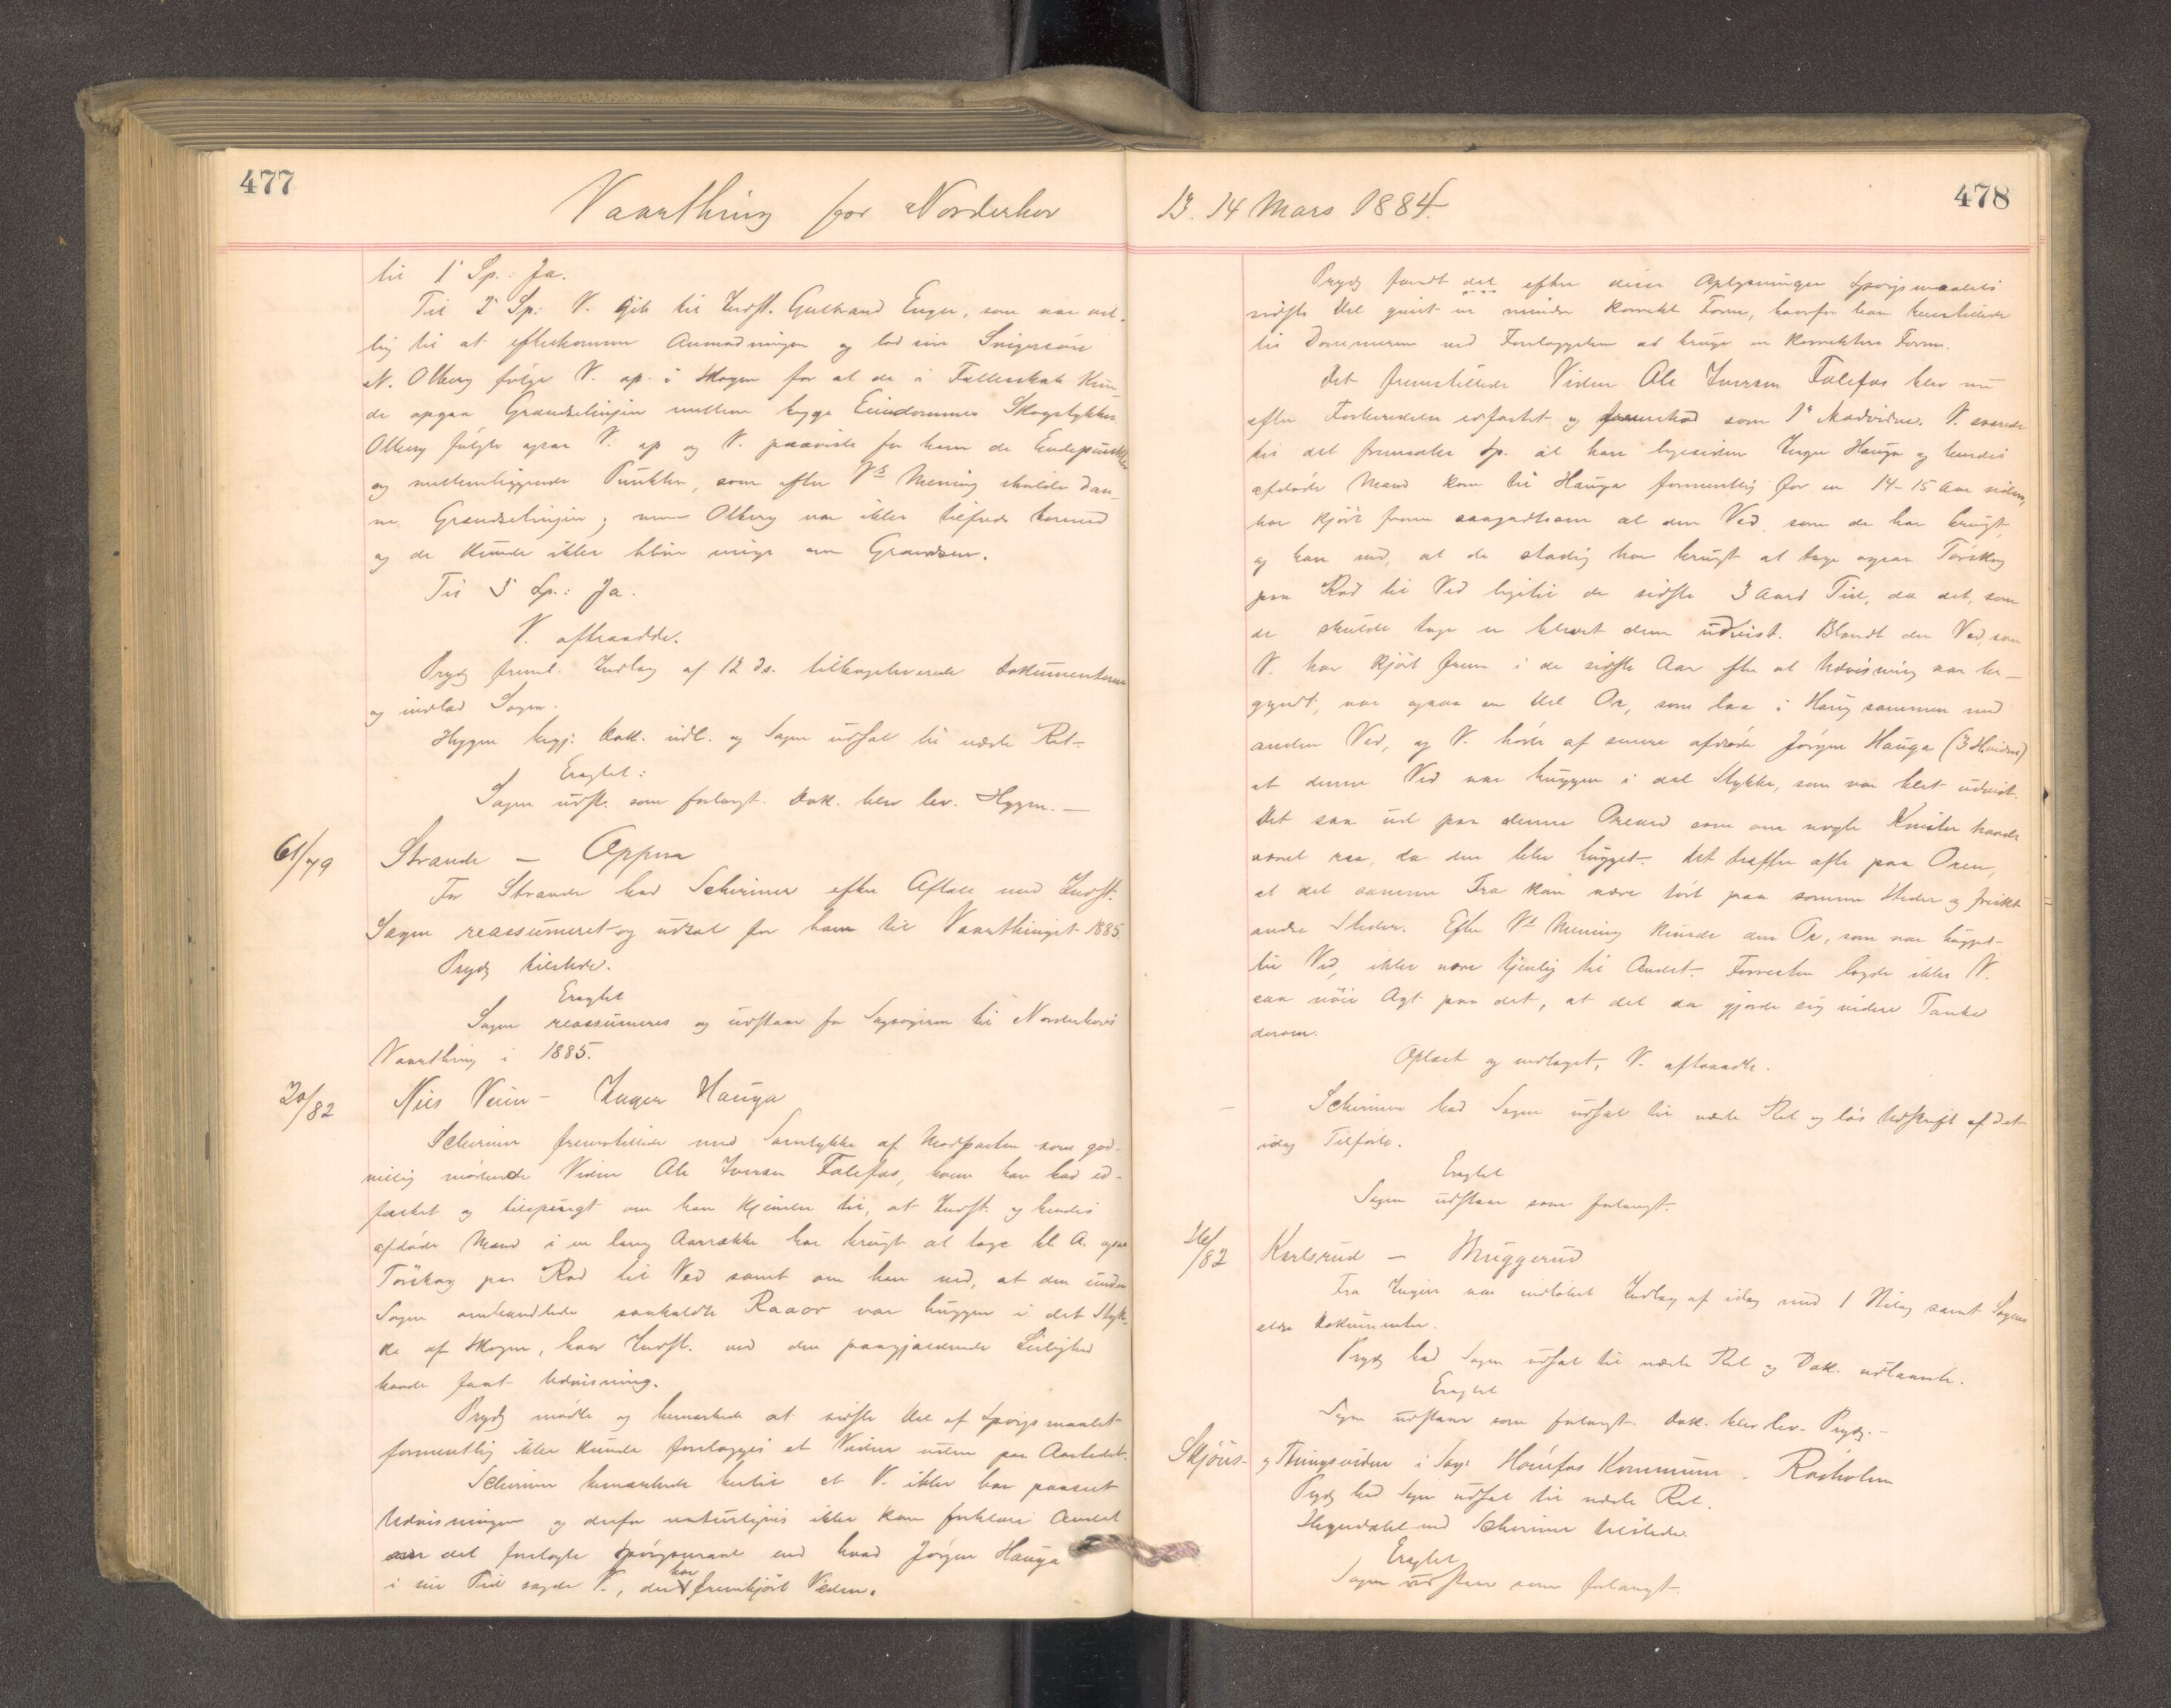 477
Vaarthing for Norderhov
til 1' Sp.: Ja.
Til 2' Sp: V. gik til Indst. Gulbrand Enger, som var vil-
lig til at efterkomme Anmodningen og lod sin Svigersøn
N. Olberg følge V. op i Skogen for at de i Fællesskab kun-
de opgaa Grændselinjen mellem begge Eiendommes Skogstykker.
Olberg fulgte ogsaa V. op og V. paaviste for ham de Endepunkter
og mellemliggende Punkter, som efter V's Mening skulde dan-
ne Grændselinjen; men Olberg var ikke tilfreds hermed
og de kunde ikke blive enige om Grændsen.
Til 3' Sp.: Ja.
V. aftraadte.
Prydz freml. Indlæg af 12 ds. tilbageleverede Dokumenterne
og indlod Sagen.
Hygen begj. Dok. udl. og Sagen udsat til næste Ret.
Eragtet:
Sagen udst. som forlangt. Dok. blev lev. Hygen. —
61/79 Strande — Oppen
For Strande bad Scheriner efter Aftale med Indst.
Sagen reassumeret og udsat for ham til Vaarthinget 1885.
Prydz tilstede.
Eragtet
Sagen reassumeres og udstaar for Sagsøgeren til Norderhovs
Vaarthing i 1885.
20/82 Nils Veien — Inger Hauga
Scheriner fremstillede med Samtykke af Modparten som god-
villig mødende Vidne Ole Iversen Falefos, hvem han bad ed-
fæstet og tilspurgt om han kjender til, at Indst. og hendes
afdøde Mand i en lang Aarrække har brugt at tage bl. A. ogsaa
Tørskog paa Rod til Ved samt om han ved, at den under
Sagen omhandlede saakaldte Raaor var huggen i det Styk-
ke af Skogen, hvor Indst. ved den paagjældende Leilighed
havde faat Udvisning.
Prydz mødte og bemærkede at sidste Del af Spørgsmaalet
formentlig ikke kunde forelægges et Vidne uden paa Aastedet.
Scheriner bemærkede hertil at V. ikke har paaseet
Udvisningen og derfor naturligvis ikke kan forklare Andet
om det forelagte Spørgsmaal end hvad Jørgen Hauga
i sin Tid sagde V., der har fremkjørt Veden.
13. 14 Mars 1884.
478
Prydz fandt det efter disse Oplysninger Spørgsmaalets
sidste Del givet en mindre korrekt Form, hvorfor han henstillede
til Dommeren ved Forelæggelsen at bruge en korrektere Form.
Det fremstillede Vidne Ole Iversen Falefos blev nu
efter Forberedelse edfæstet og fremstod som 1' Modvidne. V. svarede
til det fremsatte Sp. at han ligesiden Inger Hauga og hendes
afdøde Mand kom til Hauga formentlig for en 14-15 Aar siden,
har kjørt frem saagodtsom al den Ved, som de har brugt,
og han ved, at de stadig har brugt at tage ogsaa Tørskog
paa Rod til Ved ligetil de sidste 3 Aars Tid, da det, som
de skulde tage er blevet dem udvist. Blandt den Ved, som
V. har kjørt frem i de sidste Aar efter at Udvisning var be-
gyndt, var ogsaa en Del Or, som laa i Haug sammen med
anden Ved, og V. hørte af senere afdøde Jørgen Hauga
at denne Ved var huggen i det Stykke, som var blet udvist.
Det saa ud paa denne Oreved som om nogle Kvister havde
været raa, da den blev hugget. Det træffer ofte paa Oren,
at det samme Træ kan være tørt paa somme Steder og friskt
andre Steder. Efter V's Mening kunde den Or, som var hugget
til Ved, ikke være tjenlig til Andet. Forresten lagde ikke V.
saa nøie Agt paa det, at det da gjorde sig videre Tanke
derom.
Oplæst og vedtaget, V. aftraadte.
Scheriner bad Sagen udsat til næste Ret og løs Udskrift af det
idag Tilførte.
Eragtet
Sagen udstaar som forlangt.
26/82 Karlsrud — Muggerud
Fra Ingier var indløbet Indlæg af idag med 1 Bilag samt Sagens
ældre Dokumenter.
Prydz bad Sagen udsat til næste Ret og Dok. udlaante.
Eragtet
Sagen udstaar som forlangt. Dok. blev lev. Prydz. —
Skjøns- og Thingsvidne i Sag: Hønefos Kommune — Rødholm
Prydz bad Sagen udsat til næste Ret.
ved Scheriner tilstede.
Eragtet
Sagen udstaar som forlangt.